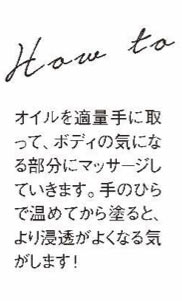 How to
オイルを適量手に取
って、ボディの気にな
る部分にマッサージし
ていきます。手のひら
で温めてから塗ると、
より浸透がよくなる気
がします！